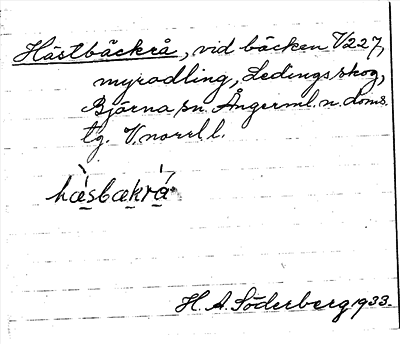 Hästbäckrå, vid bäcken V227,
myrodling, Ledingsskog,
Björna sn. Ångerml. n. doms.
lg. V.norrl l.
hæ̀sbækrá
H. A. Söderberg 1933.